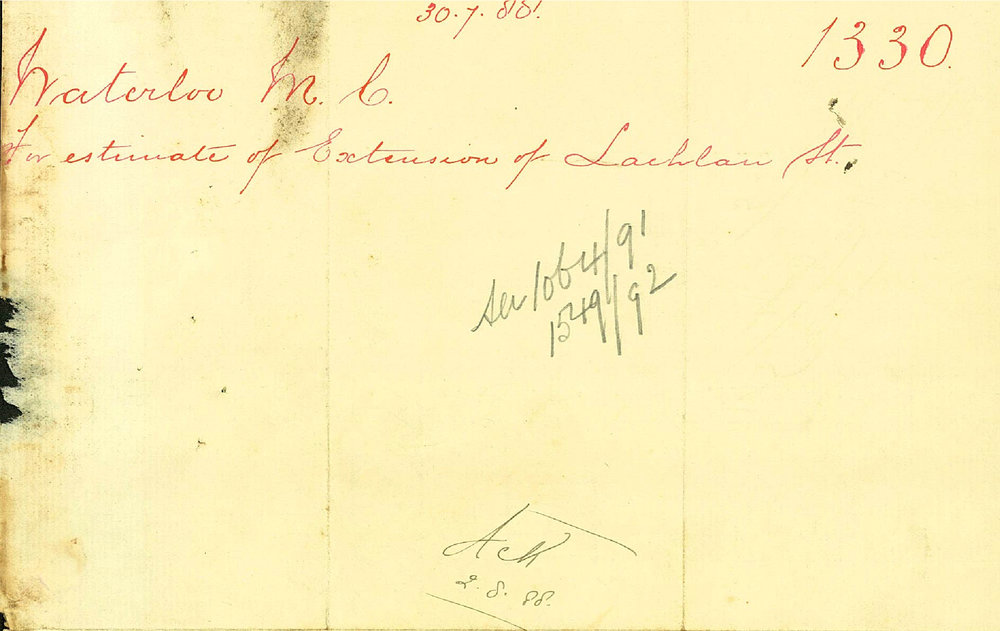 30.7.88.
1330.
Waterloo M. C.
For estimate of Extension of Lachlan St.
See 1064/91
1549/92
Ack
2.8.88.